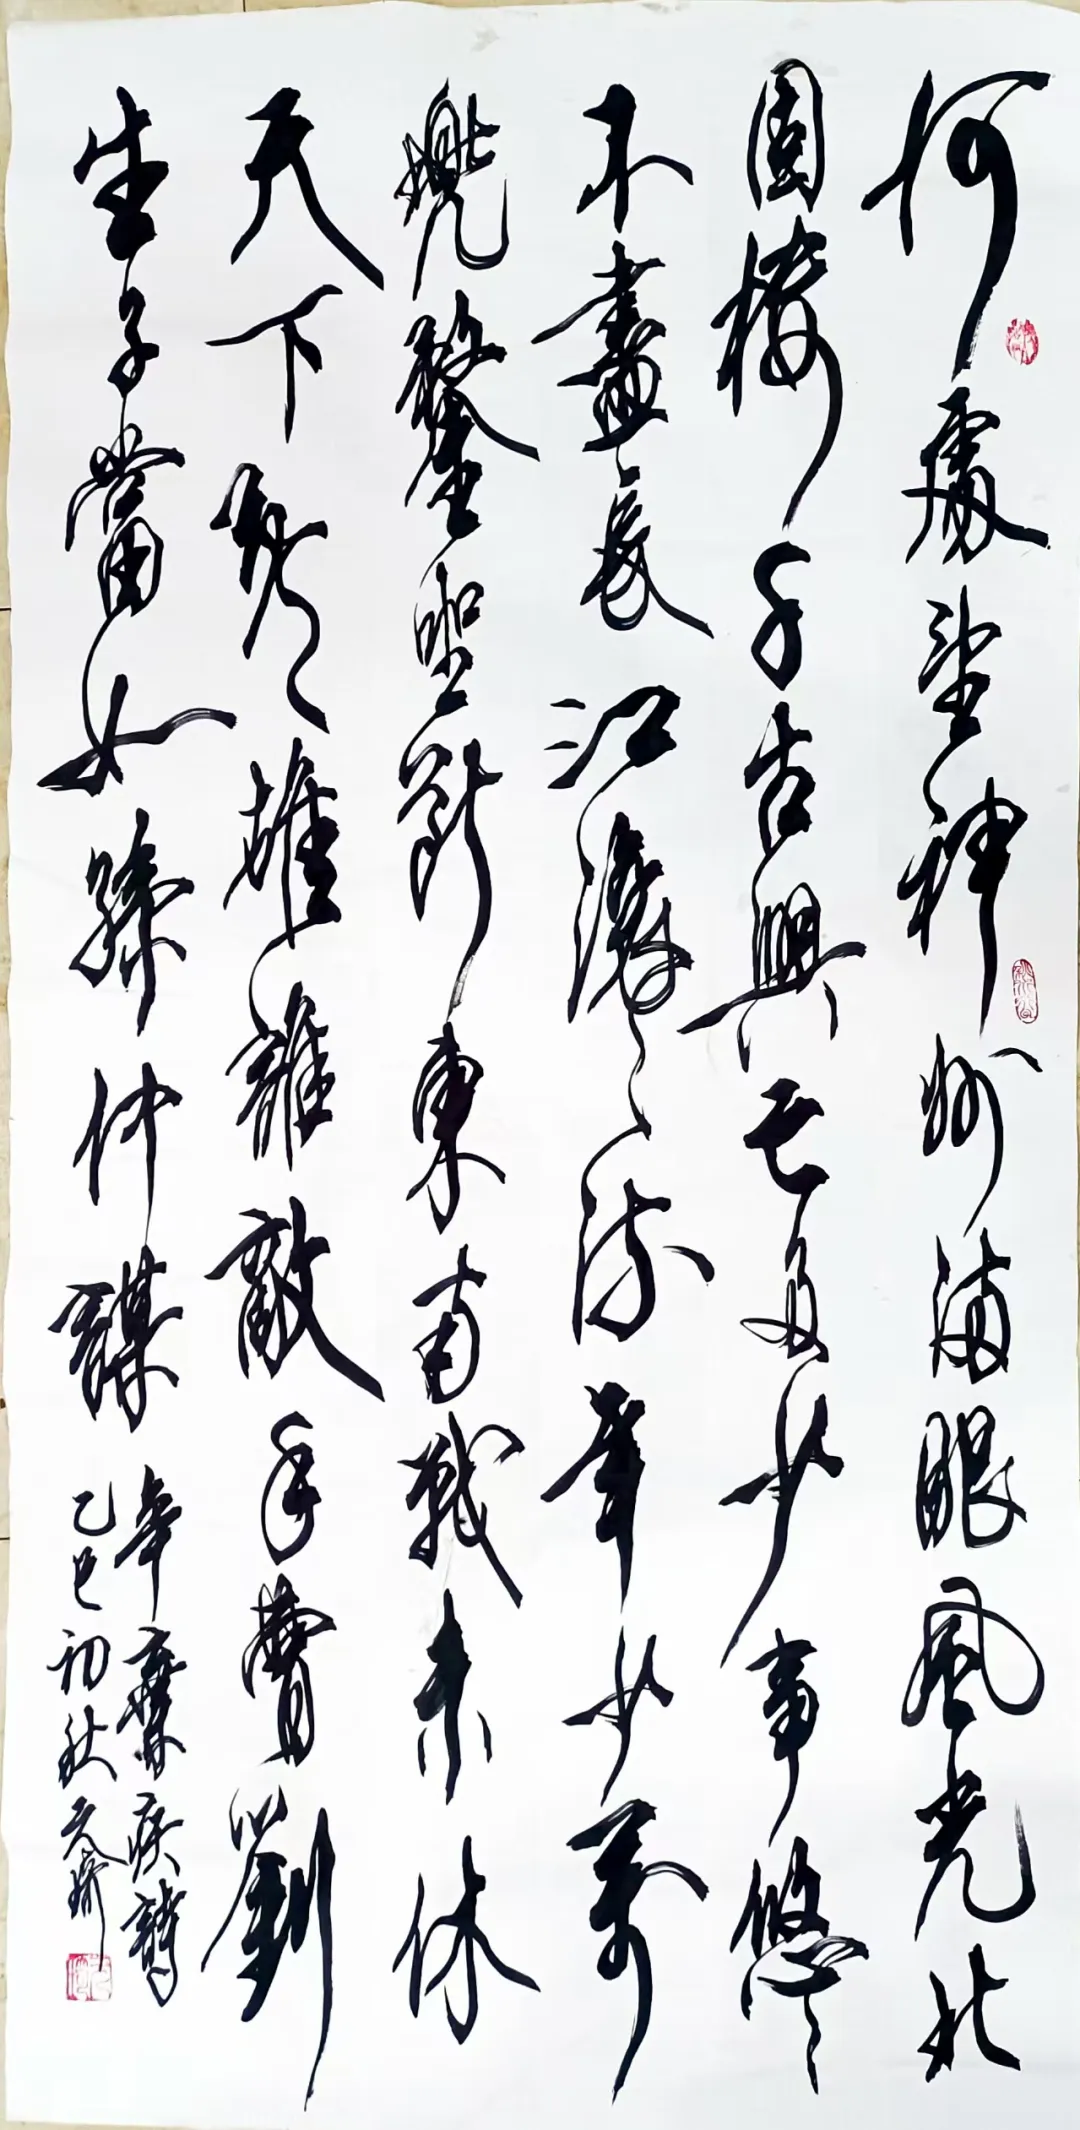 何處望神州滿眼風光北
固樓千古興亡多少事悠々
不盡長江滾々流年少萬
兜鍪坐斷東南戰未休
天下英雄誰敵手曹劉
生子當如孫仲謀
辛棄疾詞
乙巳初秋